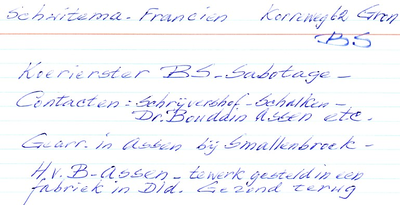 Schuitema - Francien Korreweg 62 Gron
BS
Koerierster BS - Sabotage -
Contacten: Schrijvershof - Schalken -
Dr. Boudain Assen etc.
Gearr. in Assen bij Smallenbroek -
H.v.B - Assen - tewerk gesteld in een
fabriek in Dld. Gezond terug